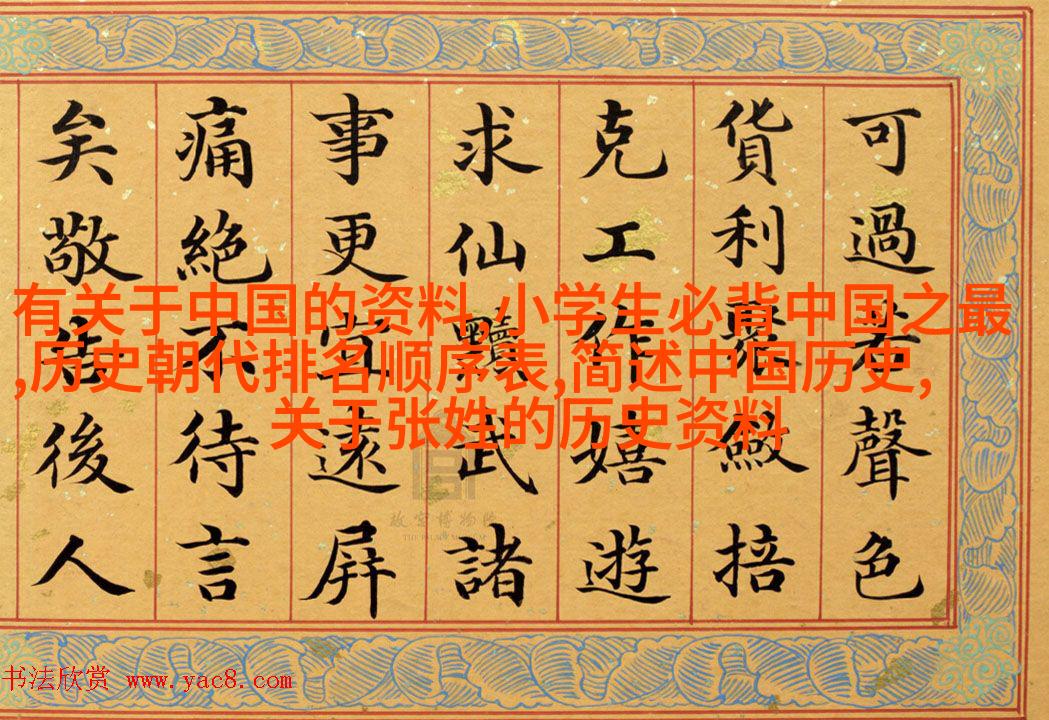 可過若聲色
貨利聚斂掊
克工作嬉遊
求仙黷武諸
事更宜遠屏
痛絕不待言
矣敬告後人
有关于中国的资料,小学生必背中国之最
,历史朝代排名顺序表,简述中国历史,
关于张姓的历史资料
故宫博物院
THE PALACE MUSEUM
书法欣赏 www.yac8.com